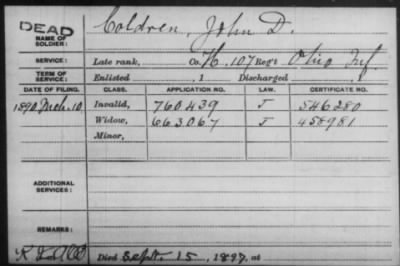 DEAD Coldren, John D.
NAME OF SOLDIER:
SERVICE: Late rank, Co. H. 107 Reg't Ohio Inf.
TERM OF SERVICE: Enlisted , 1 Discharged , 1
DATE OF FILING. CLASS. APPLICATION NO. LAW. CERTIFICATE NO.
1890 Mch. 10. Invalid, 760439 J 546280
Widow, 663067 J 458981
Minor,
ADDITIONAL SERVICES:
REMARKS:
Died Sept. 15, 1897, at